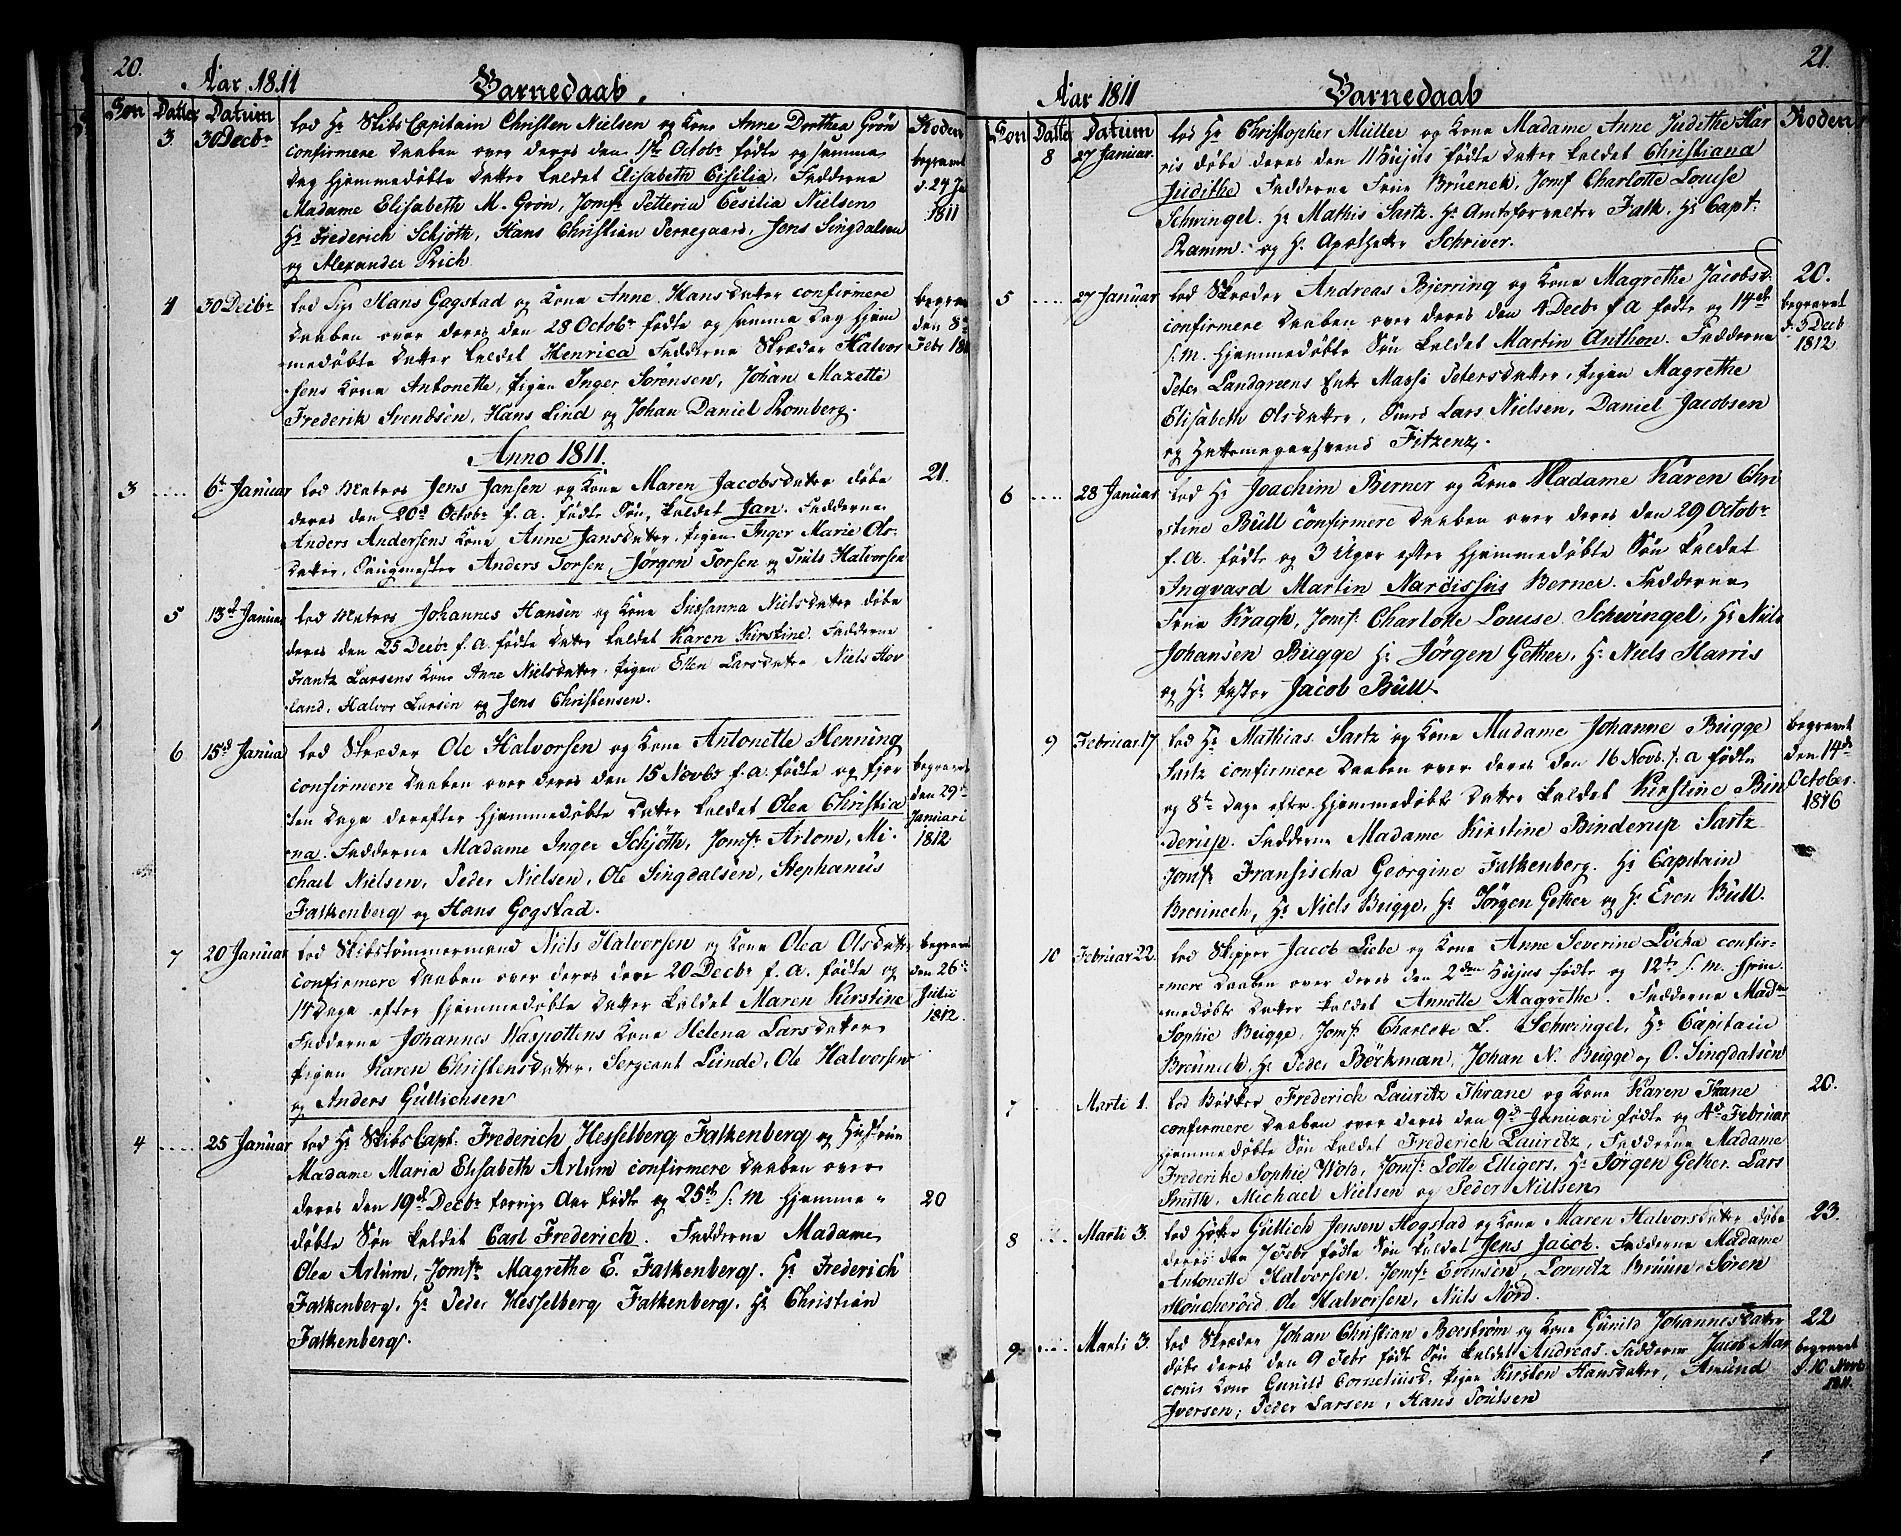 20.
Aar 1811 Barnedaab.
Søn Datter Datum Roden
3. 30 Decbr lod Hr Skibs Capitain Christen Nielsen og Kone Anne Dorthea Grön
confirmere Daaben over deres den 1ste Octobr fødte og samme begravet
Dag hjemmedøbte Datter kaldet Elisabeth Cisilia, Fadderne d. 24 Ja
Madame Elisabeth M. Grön, Jomfr Petteria Cesilia Nielsen 1811
Hr Frederich Schjöth, Hans Christian Pernegaard, Jens Singdalsen
og Alexander Prich.
4 30 Decbr lod Sigr Hans Gogstad og Kone Anne Hansdatter confirmere begrav
Daaben over deres den 28 Octobr fødte og samme Dag hjem den 8de
medøbte Datter kaldet Henrica Fadderne Skræder Halvor Febr 181
sens Kone Antonette, Pigen Inger Sörensen, Johan Mazette
Frederik Svendsen, Hans Lind og Johan Daniel Romberg.
Anno 1811.
3 6te Januar lod Matros Jens Jansen og Kone Maren Jacobsdatter døbe 21.
deres den 20de Octobr f. a. fødte Søn, kaldet Jan. Fadderne
Anders Andersens Kone Anne Jansdatter, Pigen Inger Marie Ols-
datter, Saugmester Anders Torsen, Jörgen Torsen og Truls Halvorsen
5 13de Januar lod Matros Johannes Hansen og Kone Susanna Nielsdatter døbe
deres den 25 Decbr f. a. fødte Datter kaldet Karen Kirstine. Fadderne
Frantz Larsens Kone Anne Nielsdatter, Pigen Ellen Larsdatter, Niels Hov
land, Halvor Larsen og Jens Christensen.
6 15de Janua lod Skræder Ole Halvorsen og Kone Antonette Henning
confirmere Daaben over deres den 15 Novbr f. a. fødte og fjor begravet
ten Dage derefter hjemmedøbte Datter kaldet Olea Christia den 29de
na. Fadderne Madame Inger Schjöth, Jomfr Artom, Mi- Januari
chael Nielsen, Peder Nielsen, Ole Singdalsen, Stephanus 1812
Falkenberg og Hans Gogstad.
7 20 Januar lod Skibstømmermand Niels Halvorsen og Kone Olea Olsdatter begravet
confirmere Daaben over deres den 20 Decbr f. a. fødte og den 26de
14 Dage efter hjemmedøbte Datter kaldet Maren Kirstine Julii
Fadderne Johannes Waspottens Kone Helena Larsdatter 1812.
Pigen Karen Christensdatter, Sergeant Lunde, Ole Halvorsen
og Anders Gullichsen
4 25 Januar lod Hr Skibs Capt: Frederich Hesselberg Falkenberg og Hustrue
Madame Maria Elisabeth Artum confirmere Daaben over
deres den 19de Decbr forrige Aar fødte og 25de s. M hjemme- 20
døbte Søn kaldet Carl Frederich. Fadderne Madame
Olea Artum, Jomfr Magrethe E. Falkenberg. Hr Frederich
Falkenberg. Hr Peder Hesselberg Falkenberg. Hr Christian
Falkenberg.
21.
Aar 1811 Barnedaab
Søn Datter Datum Roden
8 27 Januar. lod Hr Christopher Müller og Kone Madame Anne Judithe Har
ris døbe deres den 11 Hujus fødte Datter kaldet Christiana
Judithe Fadderne Frue Brüenech, Jomf Charlotte Louise
Schwingel. Hr Mathis Sartz. Hr Amtsforvalter Falk. Hr Capt:
Ramm. og Hr Apotheker Schriver.
5 27 Januar lod Skræder Andreas Bjerring og Kone Magrethe Jacobsd. 20.
confirmere Daaben over deres den 4 Decbr f a fødte og 14de begravet
s. M. hjemmedøbte Søn kaldet Martin Anthon. Fadderne d. 5 Decb
Peter Landgreens Enke Massi Petersdatter, Pigen Magrethe 1812
Elisabeth Olsdatter, Smed Lars Nielsen, Daniel Jacobsen
og Hattemagersvend Fitzenz.
6 28 Januar lod Hr Joachim Berner og Kone Madame Karen Chri
stine Büll confirmere Daaben over deres den 29 Octobr
f. a. fødte og 3 Uger efter hjemmedøbte Søn kaldet
Ingvard Martin Nardissus Berner. Fadderne
Frue Kragh, Jomf: Charlotte Louise Schwingel, Hr Niels
Johansen Bugge Hr Jörgen Gether, Hr Niels Harris
og Hr Pastor Jacob Büll.
9 Februar. 17 lod Hr Mathias Sartz og Kone Madame Johanne Bugge begravet
Sartz confirmere Daaben over deres den 16 Novb. f. a fødte den 14de
og 8te Dage efter hjemmedøbte Datter kaldet Kirstine Bin October.
derup. Fadderne Madame Kirstine Binderup Sartz 1816
Jomfr Fransischa Georgine Falkenberg. Hr Capitain
Breunech, Hr Niels Bugge, Hr Jörgen Gether og Hr Even Büll.
10 Februar 22. lod Skipper Jacob Liebe og Kone Anne Severine Löcha confir-
mere Daaben over deres den 2den Hujus fødte og 12te s. M. hjem
medøbte Datter kaldet Annette Magrethe. Fadderne Madme
Sophie Bugge, Jomf: Charlotte L. Schwingel, Hr Capitain
Breunech, Hr Peder Böckman, Johan N. Bugge og O. Singdalsen
7 Marti 1. lod Bødker Frederich Lauritz Thrane og Kone Karen Thane 20.
confirmere Daaben over deres den 9de Januari fødte og 4de Februar
hjemmedøbte Søn kaldet Frederich Lauritz, Fadderne Madame
Frederike Sophie Wold, Jomf: Lotte Elligers, Hr Jörgen Gether, Lars
Smith, Michael Nielsen og Peder Nielsen
8 Marti 3. lod Höker Gullich Jensen Hogstad og Kone Maren Halvorsdatter døbe 23.
deres den 7 Febr fødte Søn kaldet Jens Jacob. Fadderne Madame
Antonette Halvorsen, Jomf: Evensen, Lorentz Bruun, Sören
Muncheröed, Ole Halvorsen, Niels Nord.
9 Marti 3. lod Skræder Johan Christian Boeström og Kone Gunild Johannesdatter 22
døbe deres den 9 Febr fødte Søn kaldet Andreas. Fadderne Jacob Mar begravet
conis Kone Gunild Corneliusd, Pigen Kirsten Hansdatter, Amund d. 10 Novb
Iversen, Peder Larsen, Hans Poulsen 1811.